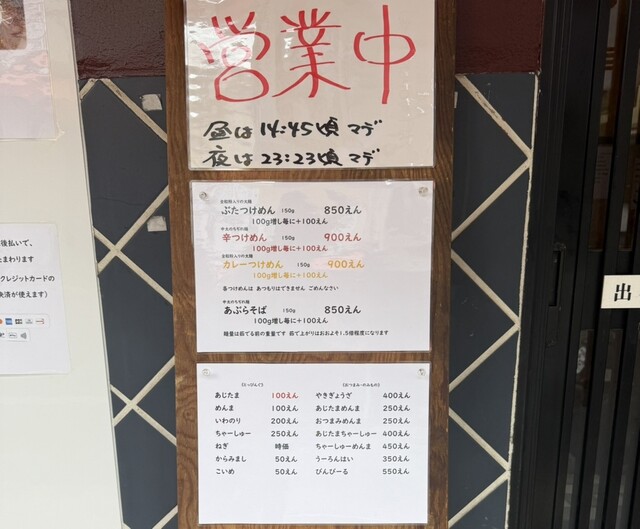 営業中
昼は 14:45頃 マデ
夜は 23:23頃 マデ
全粒粉入りの太麺
ぶたつけめん 150g 850えん
100g増し毎に+100えん
中太のちぢれ麺
辛つけめん 150g 900えん
100g増し毎に+100えん
全粒粉入りの太麺
カレーつけめん 150g 900えん
100g増し毎に+100えん
各つけめんは あつもりはできません ごめんなさい
中太のちぢれ麺
あぶらそば 150g 850えん
100g増し毎に+100えん
麺量は茹でる前の重量です 茹で上がりはおおよそ1.5倍程度になります
《とっぴんぐ》
あじたま 100えん
めんま 100えん
いわのり 200えん
ちゃーしゅー 250えん
ねぎ 時価
からみまし 50えん
こいめ 50えん
《おつまみ・のみもの》
やきぎょうざ 400えん
あじたまめんま 250えん
おつまみめんま 250えん
あじたまちゃーしゅー 400えん
ちゃーしゅーめんま 450えん
うーろんはい 350えん
びんびーる 550えん
後払いで、
たまわります
クレジットカードの
決済が使えます)
出